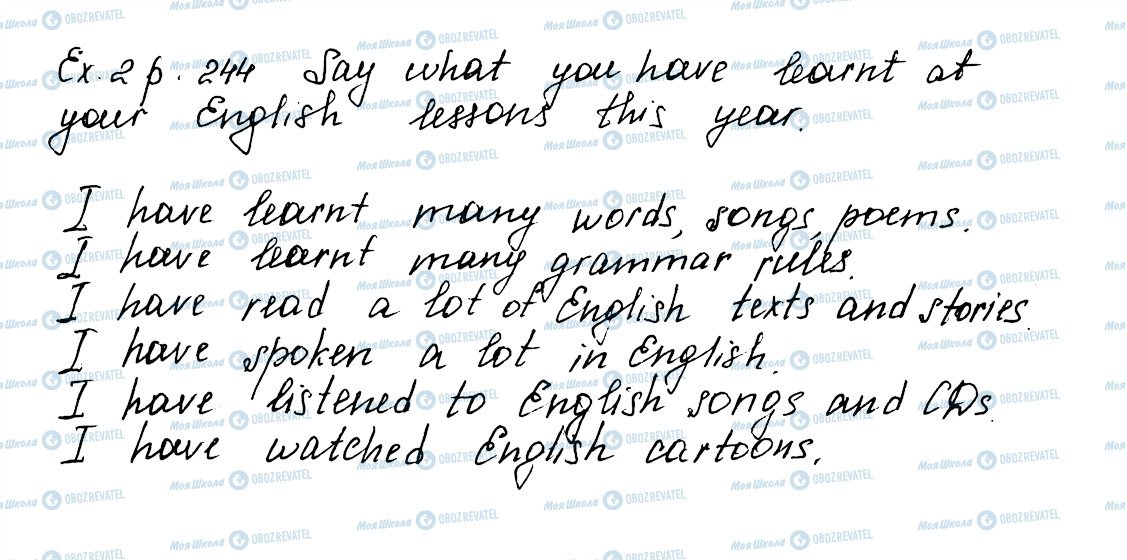 Ex. 2 p. 244 Say what you have learnt at
your English lessons this year.
I have learnt many words, songs, poems.
I have learnt many grammar rules.
I have read a lot of English texts and stories.
I have spoken a lot in English.
I have listened to English songs and CDs.
I have watched English cartoons.